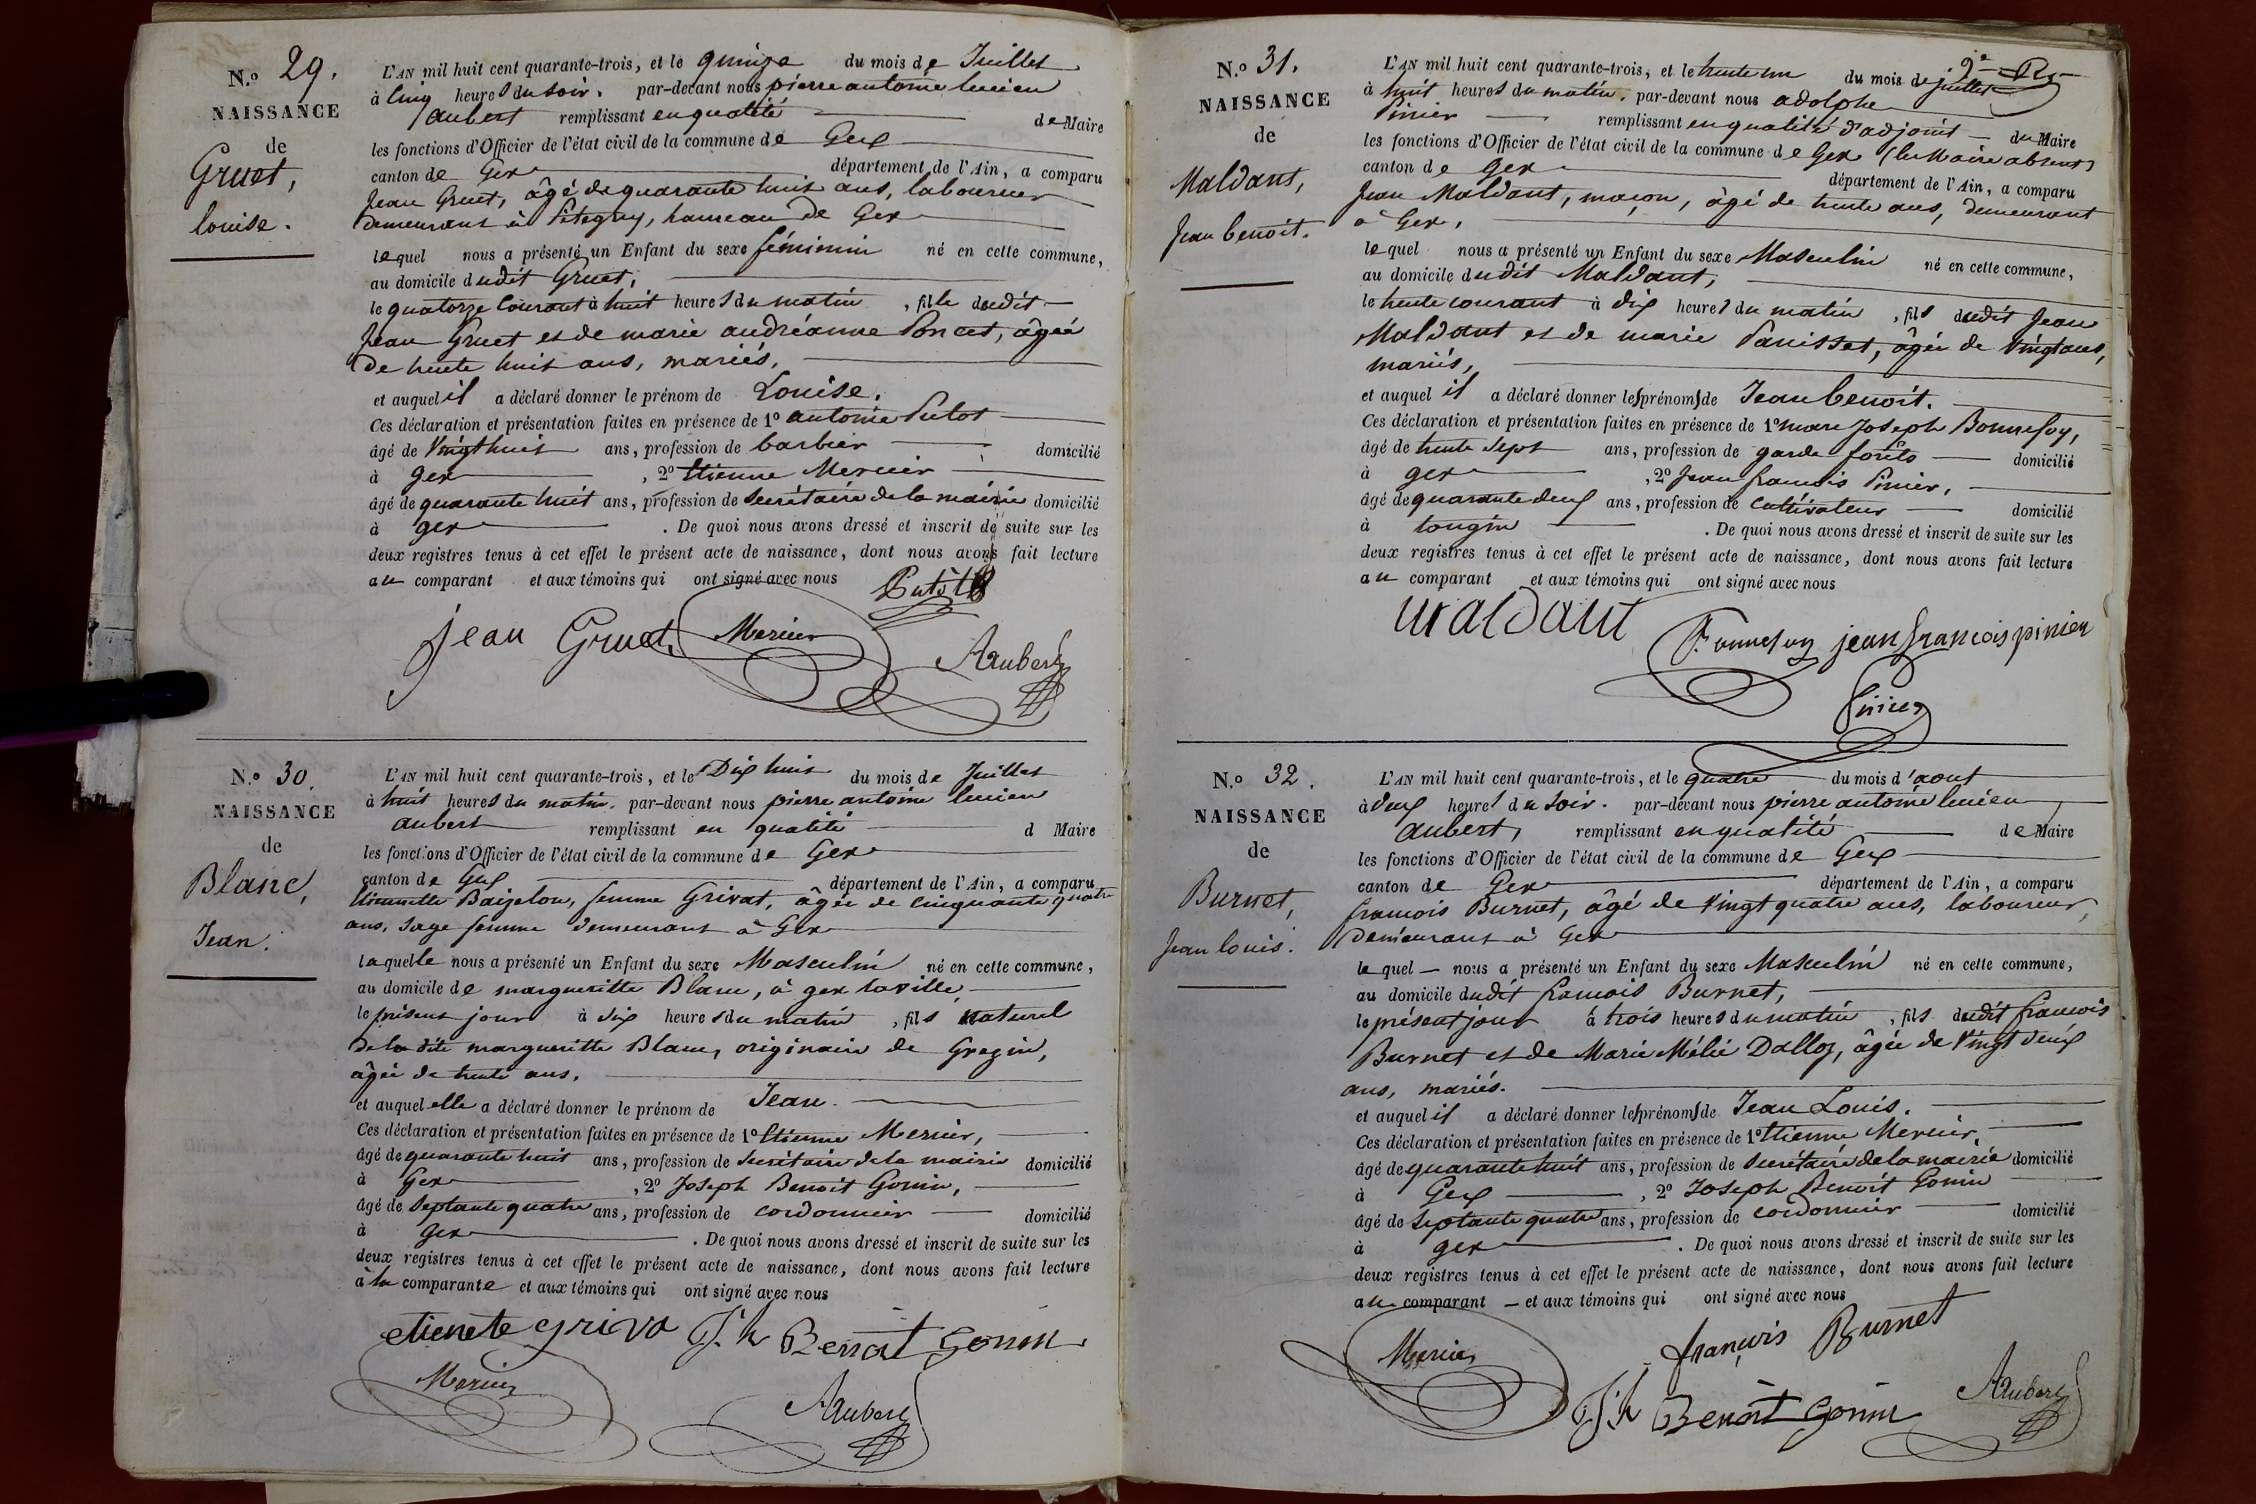 N.º 29.
NAISSANCE
de
Gruet,
Louise.
L'AN mil huit cent quarante-trois, et le quinze du mois de Juillet
à cinq heures du soir. par-devant nous pierre antoine lucien
aubert remplissant en qualité de Maire
les fonctions d'Officier de l'état civil de la commune de Gex
canton de Gex département de l'Ain, a comparu
Jean Gruet, âgé de quarante huit ans, laboureur
demeurant à Pitegny, hameau de Gex
lequel nous a présenté un Enfant du sexe féminin né en cette commune,
au domicile dudit Gruet,
le quatorze courant à huit heures du matin, fille dudit
Jean Gruet et de marie andréanne Poncet, âgée
de trente huit ans, mariés,
et auquel il a déclaré donner le prénom de Louise.
Ces déclaration et présentation faites en présence de 1º antoine Putot
âgé de vingt huit ans, profession de barbier domicilié
à gex, 2º Etienne Mercier
âgé de quarante huit ans, profession de secrétaire de la mairie domicilié
à gex. De quoi nous avons dressé et inscrit de suite sur les
deux registres tenus à cet effet le présent acte de naissance, dont nous avons fait lecture
au comparant et aux témoins qui ont signé avec nous
Putot
jean Gruet Mercier
A Aubert
N.º 30.
NAISSANCE
de
Blanc,
Jean.
L'AN mil huit cent quarante-trois, et le Dix huit du mois de Juillet
à huit heures du matin. par-devant nous pierre antoine lucien
aubert remplissant en qualité d Maire
les fonctions d'Officier de l'état civil de la commune de Gex
canton de Gex département de l'Ain, a comparu
Etiennette Baizelon, femme Grivat, âgée de cinquante quatre
ans, sage femme demeurant à Gex
laquelle nous a présenté un Enfant du sexe Masculin né en cette commune,
au domicile de margueritte Blanc, à gex la ville,
le présent jour à six heures du matin, fils naturel
de la dite margueritte Blanc, originaire de Grozin,
âgée de trente ans.
et auquel elle a déclaré donner le prénom de Jean
Ces déclaration et présentation faites en présence de 1º Etienne Mercier,
âgé de quarante huit ans, profession de secrétaire de la mairie domicilié
à Gex, 2º Joseph Benoit Gonin,
âgé de septante quatre ans, profession de cordonnier domicilié
à gex. De quoi nous avons dressé et inscrit de suite sur les
deux registres tenus à cet effet le présent acte de naissance, dont nous avons fait lecture
à la comparante et aux témoins qui ont signé avec nous
etienete griva J.h Benoit Gonin
Mercier
A Aubert
N.º 31.
NAISSANCE
de
Maldant,
Jean benoit.
L'AN mil huit cent quarante-trois, et le trente un du mois de juillet
à huit heures du matin. par-devant nous adolphe
Pinier remplissant en qualité d'adjoint du Maire
les fonctions d'Officier de l'état civil de la commune de Gex (le Maire absent)
canton de gex département de l'Ain, a comparu
Jean Maldant, maçon, âgé de trente ans, demeurant
à Gex,
lequel nous a présenté un Enfant du sexe Masculin né en cette commune,
au domicile dudit Maldant,
le trente courant à dix heures du matin, fils dudit Jean
Maldant et de marie Panisset, âgée de vingt ans,
mariés,
et auquel il a déclaré donner les prénoms de Jean benoit.
Ces déclaration et présentation faites en présence de 1º marc Joseph Bonnefoy,
âgé de trente sept ans, profession de garde forêts domicilié
à gex, 2º Jean françois Pinier,
âgé de quarante deux ans, profession de cultivateur domicilié
à tougin. De quoi nous avons dressé et inscrit de suite sur les
deux registres tenus à cet effet le présent acte de naissance, dont nous avons fait lecture
au comparant et aux témoins qui ont signé avec nous
maldant
Bonnefoy jean francois pinier
Pinier
N.º 32.
NAISSANCE
de
Burnet,
Jean louis.
L'AN mil huit cent quarante-trois, et le quatre du mois d'aout
à deux heures du soir. par-devant nous pierre antoine lucien
aubert, remplissant en qualité de Maire
les fonctions d'Officier de l'état civil de la commune de Gex
canton de Gex département de l'Ain, a comparu
françois Burnet, âgé de vingt quatre ans, laboureur,
demeurant à Gex
lequel nous a présenté un Enfant du sexe Masculin né en cette commune,
au domicile dudit françois Burnet,
le présent jour à trois heures du matin, fils dudit françois
Burnet et de Marie Mélie Dalloz, âgée de vingt deux
ans, mariés.
et auquel il a déclaré donner les prénoms de Jean Louis.
Ces déclaration et présentation faites en présence de 1º Etienne Mercier,
âgé de quarante huit ans, profession de secrétaire de la mairie domicilié
à Gex, 2º Joseph Benoit Gonin
âgé de septante quatre ans, profession de cordonnier domicilié
à gex. De quoi nous avons dressé et inscrit de suite sur les
deux registres tenus à cet effet le présent acte de naissance, dont nous avons fait lecture
au comparant et aux témoins qui ont signé avec nous
Mercier françois Burnet
J.h Benoit Gonin A Aubert